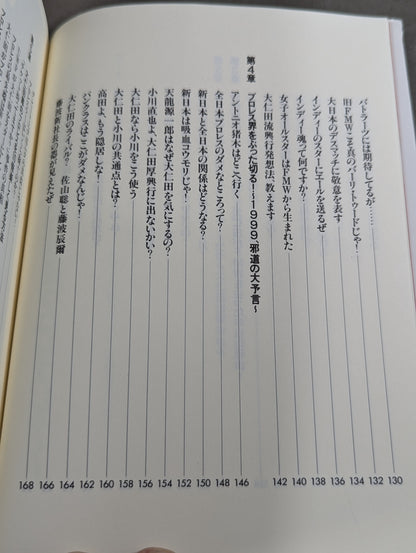 バトラーツには期待してるが…… 130
旧FMWこそ真のバーリ・トゥードじゃ! 132
大日本のデスマッチに敬意を表す 134
インディーのスターにエールを送るぜ 136
インディー魂って何ですか? 138
女子オールスターはFMWから生まれた 140
大仁田流興行発想法、教えます 142
第4章 プロレス界をぶった切る!〜1999、邪道の大予言〜
アントニオ猪木はどこへ行く 146
全日本プロレスのダメなところって? 148
新日本と全日本の関係はどうなる? 150
新日本は吸血コウモリじゃ! 152
天龍源一郎はなぜ大仁田を気にするの? 154
小川直也よ、大仁田厚興行に出ないかい? 156
大仁田なら小川をこう使う 158
大仁田と小川の共通点とは? 160
高田よ、もう隠居しな! 162
パンクラスはここがダメなんじゃ! 164
大仁田のライバル? 佐山聡と藤波辰爾 166
藤波新社長の姿が見えたぜ 168